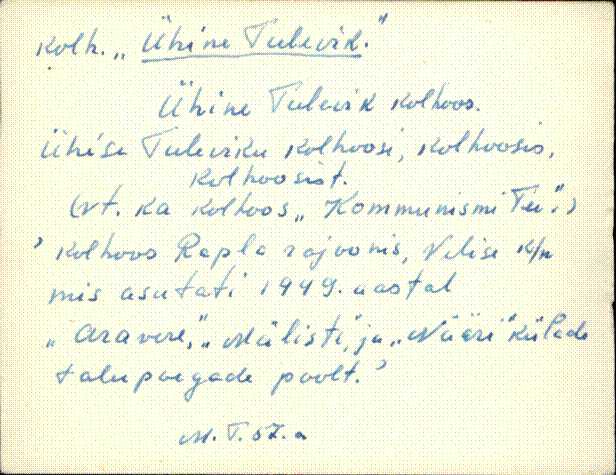 Kolh. „Ühine Tulevik.”
Ühine Tulevik kolhoos.
Ühise Tuleviku kolhoosi, kolhoosis,
kolhoosist.
(vt. ka kolhoos „Kommunismi Tee”.)
’kolhoos Rapla rajoonis, Velise k/n
mis asutati 1949. aastal
„Aravere,” „Mälisti”, ja „Nääri” külade
talupoegade poolt.’
M. T. 57. a